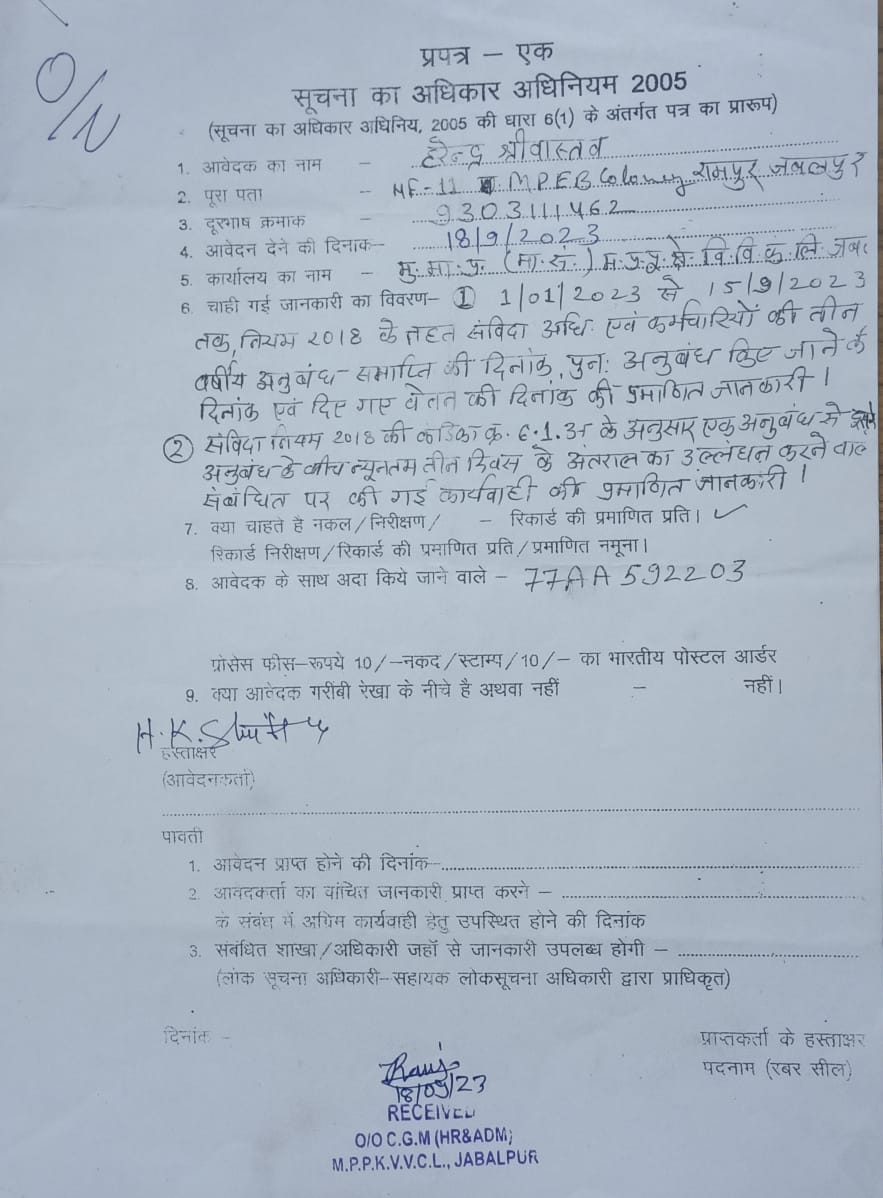 O/N
प्रपत्र – एक
सूचना का अधिकार अधिनियम 2005
(सूचना का अधिकार अधिनिय, 2005 की धारा 6(1) के अंतर्गत पत्र का प्रारूप)
1. आवेदक का नाम – हरेन्द्र श्रीवास्तव
2. पूरा पता – MF-11 MPEB Colony रामपुर जबलपुर
3. दूरभाष क्रमाक – 9303111462
4. आवेदन देने की दिनाक– 18/9/2023
5. कार्यालय का नाम – मु. मा. प्र. (मा. स.) म.प्र.पू.क्षे. वि. वि. कं. लि. जब.
6. चाही गई जानकारी का विवरण– ① 1/01/2023 से 15/9/2023
तक, नियम 2018 के तहत संविदा अधि. एवं कर्मचारियों की तीन
वर्षीय अनुबंध समाप्ति की दिनांक, पुन: अनुबंध किए जाने के
दिनांक एवं दिए गए वेतन की दिनांक की प्रमाणित जानकारी।
② संविदा नियम 2018 की कंडिका क्र. 6.1.3 के अनुसार एक अनुबंध से दूसरे
अनुबंध के बीच न्यूनतम तीन दिवस के अंतराल का उल्लंघन करने वाले
संबंधित पर की गई कार्यवाही की प्रमाणित जानकारी।
7. क्या चाहते है नकल/निरीक्षण/ – रिकार्ड की प्रमाणित प्रति। ✓
रिकार्ड निरीक्षण/रिकार्ड की प्रमाणित प्रति/प्रमाणित नमूना।
8. आवेदक के साथ अदा किये जाने वाले – 77AA 592203
प्रोसेस फीस–रूपये 10/–नकद/स्टाम्प/10/– का भारतीय पोस्टल आर्डर
9. क्या आवेदक गरीबी रेखा के नीचे है अथवा नहीं – नहीं।
H.K.
हस्ताक्षर
(आवेदनकर्ता)
पावती
1. आवेदन प्राप्त होने की दिनांक–
2. आवदकर्ता का वांचित जानकारी प्राप्त करने –
के संबंध में अग्रिम कार्यवाही हेतु उपस्थित होने की दिनांक
3. संबंधित शाखा/अधिकारी जहॉ से जानकारी उपलब्ध होगी –
(लोक सूचना अधिकारी–सहायक लोकसूचना अधिकारी द्वारा प्राधिकृत)
दिनांक –
प्राप्तकर्ता के हस्ताक्षर
पदनाम (रबर सील)
18/09/23
RECEIVED
O/O C.G.M (HR&ADM)
M.P.P.K.V.V.C.L., JABALPUR